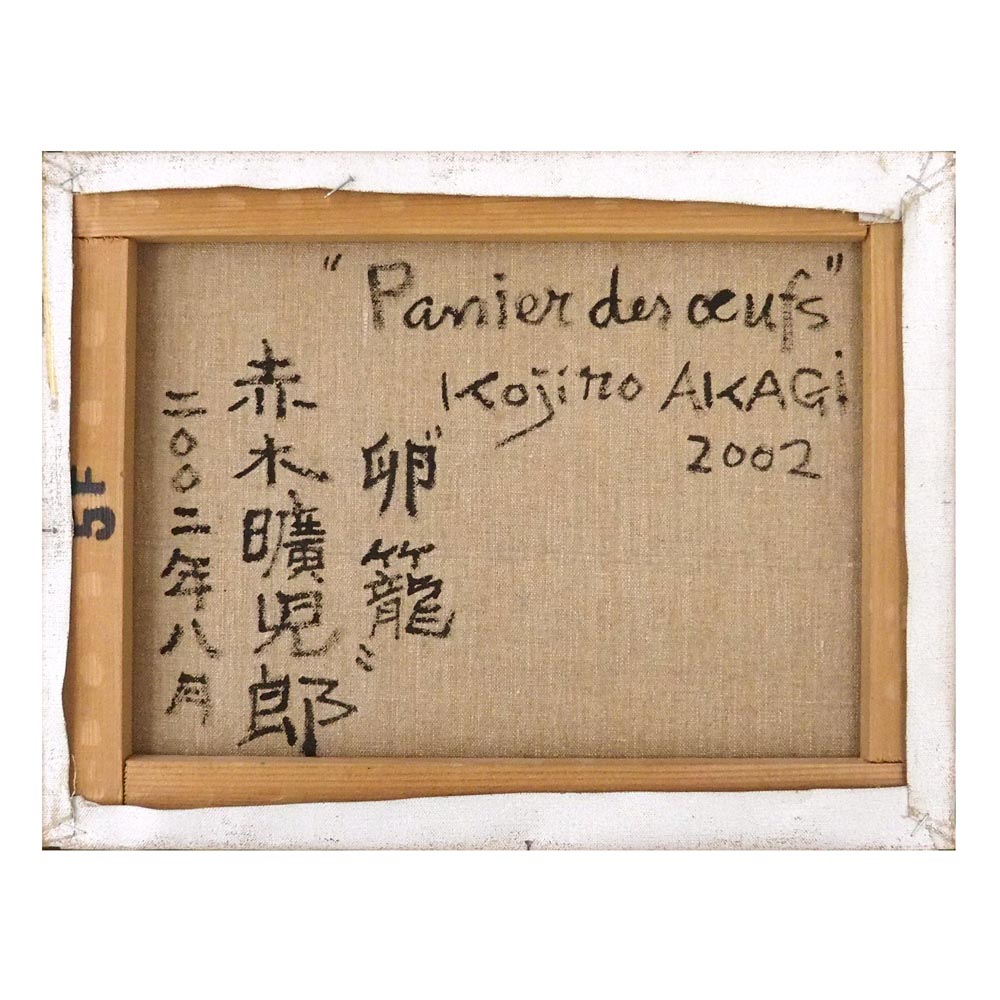 "Panier des œufs"
Kojiro AKAGI
2002
"卵籠"
赤木曠児郎
二〇〇二年八月
5F